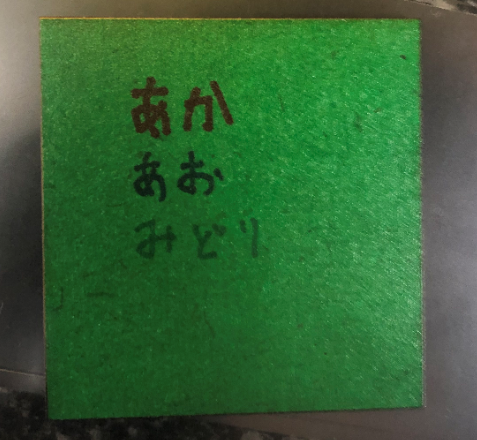 あか
あお
みどり